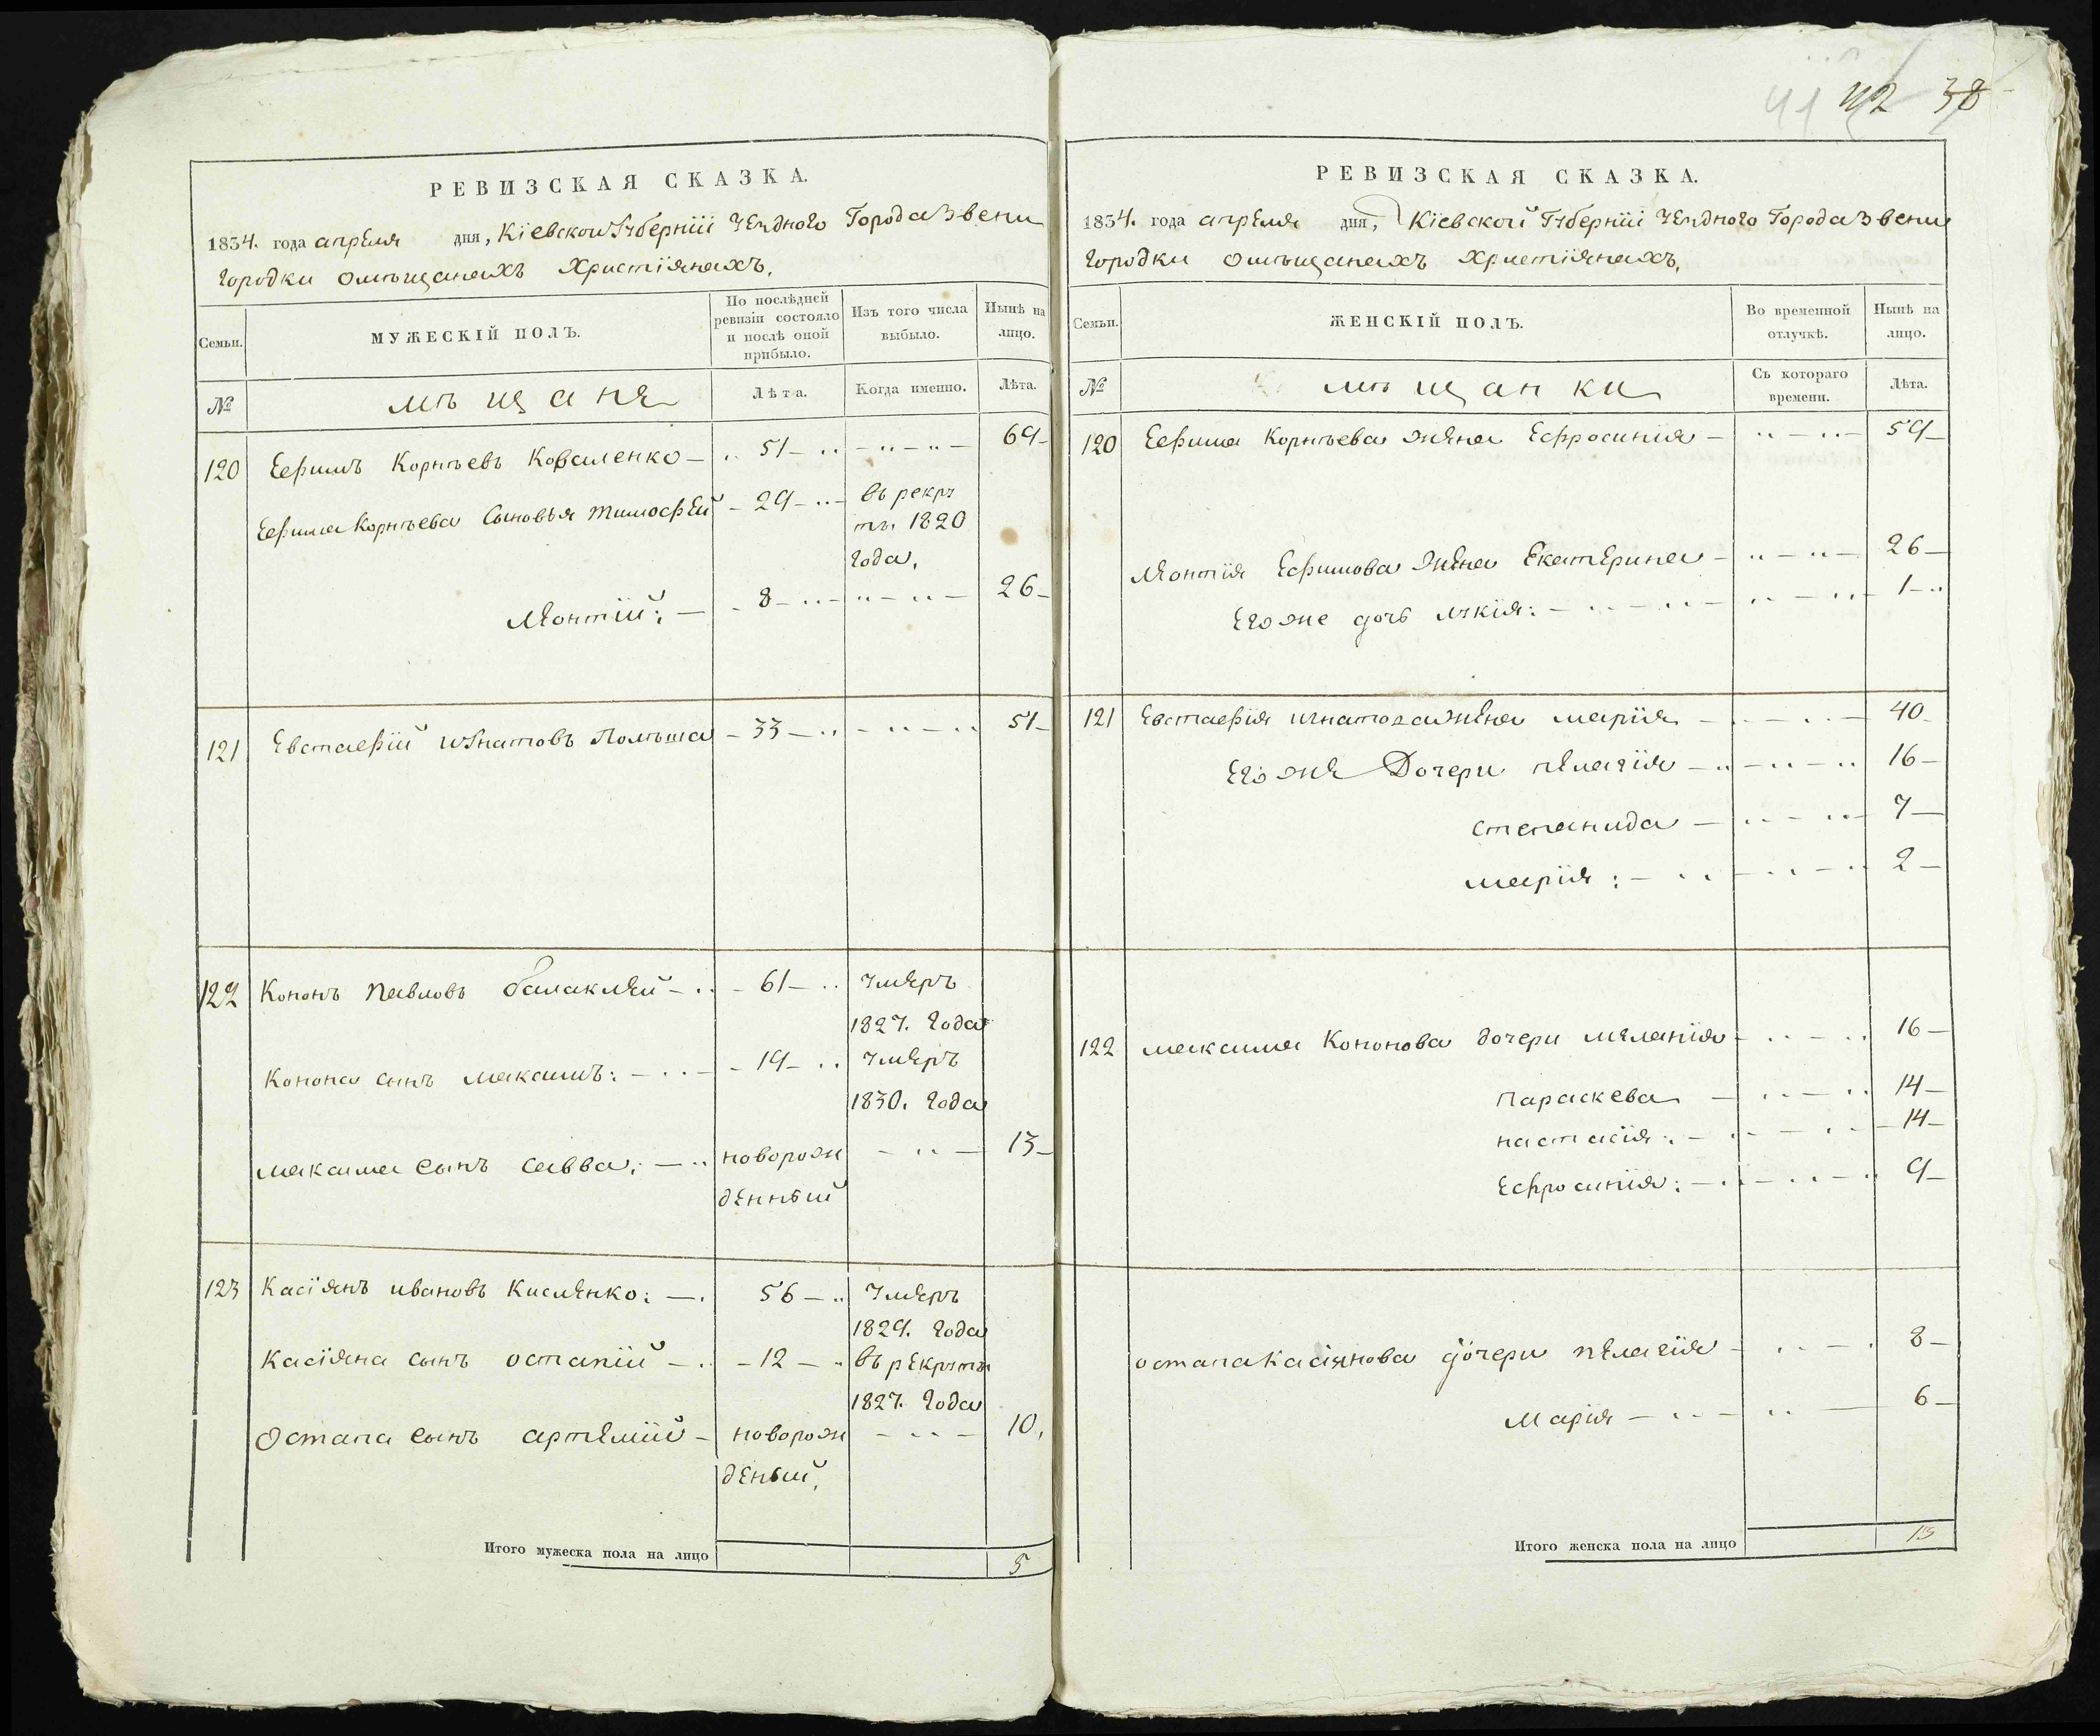 41 42 38
РЕВИЗСКАЯ СКАЗКА.
1834. года апреля дня, Кіевской Губерніи Уездного Города Звени
городки о мѣщанахъ христіянахъ.
Семьи.
МУЖЕСКІЙ ПОЛЪ.
По послѣдней ревизіи состояло и послѣ оной прибыло.
Изъ того числа выбыло.
Нынѣ на лицо.
№
мѣщане
Лѣта.
Когда именно.
Лѣта.
120 Ефимъ Корнѣевъ Коваленко — 51 — 69
Ефима Корнѣева сыновья Тимофей — 29 — въ рекру
тъ. 1820
года.
Леонтій: — 8 — 26
121 Евстафій Игнатовъ Полѣша — 33 — 51
122 Кононъ Павловъ балаклей — 61 — умеръ
1827. года
Конона сынъ максимъ: — 19 — умеръ
1830. года
максима сынъ савва: — новорож — 13
денный
123 Касіянъ ивановъ Кисленко: — 56 — умеръ
1829. года
Касіяна сынъ остапій — 12 — въ рекруты
1827. года
Остапа сынъ артемій — новорож — 10.
деный.
Итого мужеска пола на лицо 5
РЕВИЗСКАЯ СКАЗКА.
1834. года апреля дня, Кіевской Губерніи Уездного Города Звени
городки о мѣщанахъ христіянахъ.
Семьи.
ЖЕНСКІЙ ПОЛЪ.
Во временной отлучкѣ.
Нынѣ на лицо.
№
мѣщанки
Съ котораго времени.
Лѣта.
120 Ефима Корнѣева жена Ефросинія — 59
Леонтія Ефимова жена Екатерина — 26
Его же дочь лукія: — 1
121 Евстафія игнатова жена марія — 40
Его же Дочери пелагія — 16
степанида — 7
марія: — 2
122 максима Кононова дочери меланія — 16
параскева — 14
настасія: — 14
Ефросинія: — 9
остапа Касіянова дочери пелагія — 8
Марія — 6
Итого женска пола на лицо 13